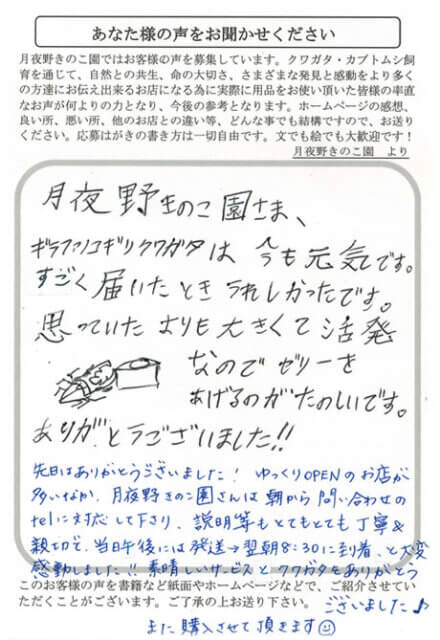 あなた様の声をお聞かせください
月夜野きのこ園ではお客様の声を募集しています。クワガタ・カブトムシ飼
育を通じて、自然との共生、命の大切さ、さまざまな発見と感動をより多く
の方達にお伝え出来るお店になる為に実際に用品をお使い頂いた皆様の率直
なお声が何よりの力となり、今後の参考となります。ホームページの感想、
良い所、悪い所、他のお店との違い等、どんな事でも結構ですので、お送り
ください。応募はがきの書き方は一切自由です。文でも絵でも大歓迎です！
月夜野きのこ園　より
月夜野きのこ園さま、
ギラファノコギリクワガタは今も元気です。
すごく届いたときうれしかったです。
思っていたよりも大きくて活発
なのでゼリーを
あげるのがたのしいです。
ありがとうございました!!
先日はありがとうございました！ゆっくりOPENのお店が
多いなか、月夜野きのこ園さんは朝から問い合わせの
telに対応して下さり、説明等もとてもとても丁寧&
親切で、当日午後には発送→翌朝8:30に到着、と大変
感動しました!!素晴しいサービスとクワガタをありがとう
このお客様の声を書籍など紙面やホームページなどで、ご紹介させてい
ただくことがございます。ご了承の上お送り下さい。
ございました♪
また購入させて頂きます☺